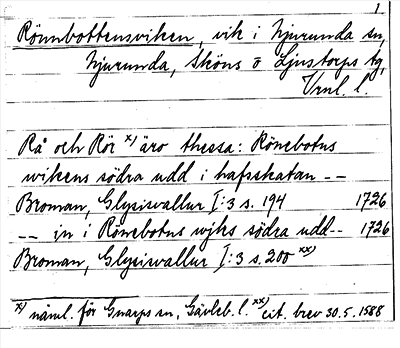 1.
Rönnbottensviken, vik i Njurunda sn,
Njurunda, Sköns o Ljustorps tg,
Vrnl. l.
Rå och Rör x) äro thessa: Rönebotns
wikens södra udd i hafsskatan --
Broman, Glysisvallur I:3 s. 194 1726
-- in i Rönebotns wjks södra udd-- 1726
Broman, Glysisvallur I:3 s. 200 xx)
x) näml. för Gnarps sn, Gävleb. l. xx) cit. brev 30.5.1588